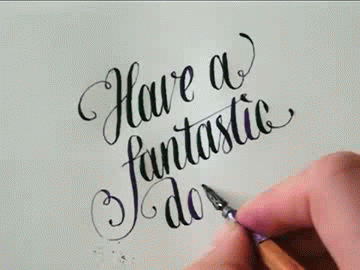 Have a
fantastic
do